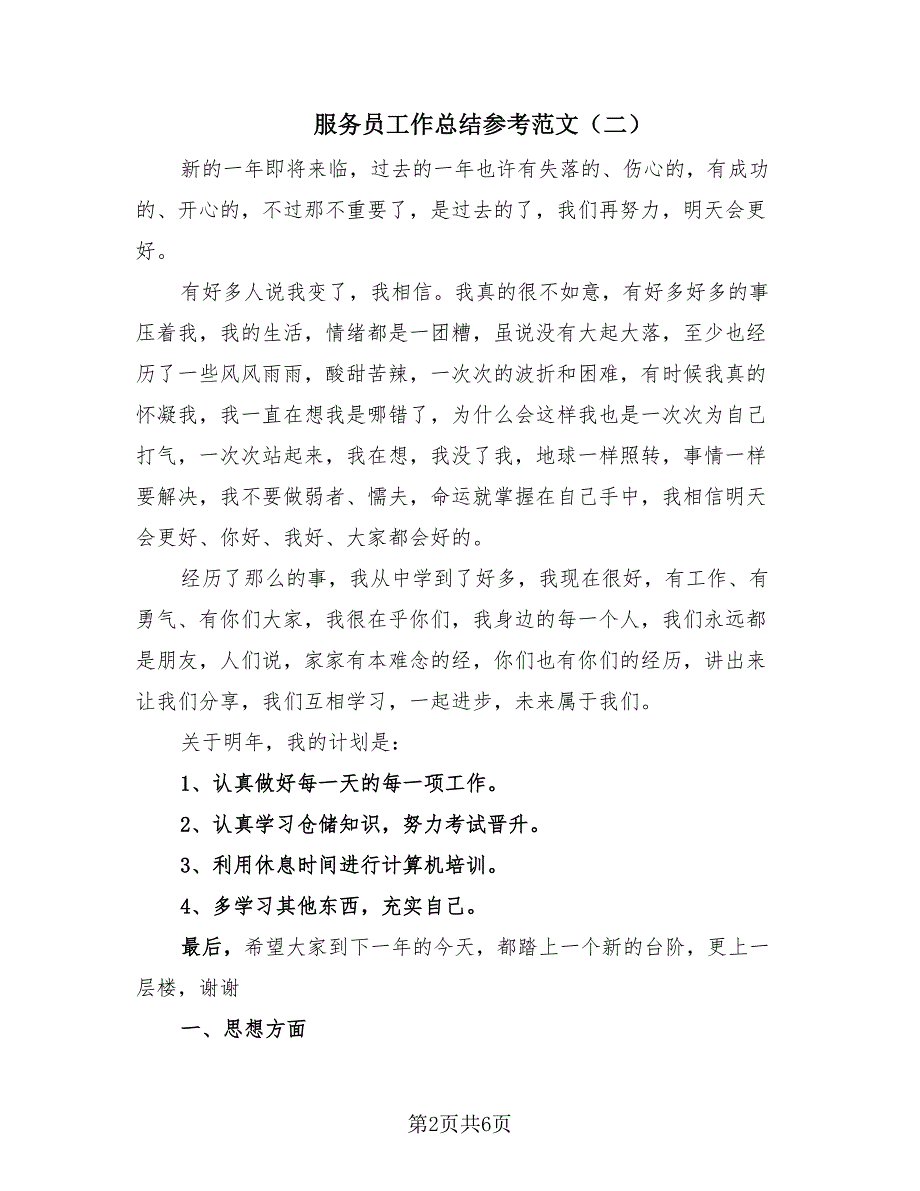 服务员工作总结参考范文（二）
新的一年即将来临，过去的一年也许有失落的、伤心的，有成功
的、开心的，不过那不重要了，是过去的了，我们再努力，明天会更
好。
有好多人说我变了，我相信。我真的很不如意，有好多好多的事
压着我，我的生活，情绪都是一团糟，虽说没有大起大落，至少也经
历了一些风风雨雨，酸甜苦辣，一次次的波折和困难，有时候我真的
怀凝我，我一直在想我是哪错了，为什么会这样我也是一次次为自己
打气，一次次站起来，我在想，我没了我，地球一样照转，事情一样
要解决，我不要做弱者、懦夫，命运就掌握在自己手中，我相信明天
会更好、你好、我好、大家都会好的。
经历了那么的事，我从中学到了好多，我现在很好，有工作、有
勇气、有你们大家，我很在乎你们，我身边的每一个人，我们永远都
是朋友，人们说，家家有本难念的经，你们也有你们的经历，讲出来
让我们分享，我们互相学习，一起进步，未来属于我们。
关于明年，我的计划是：
1、认真做好每一天的每一项工作。
2、认真学习仓储知识，努力考试晋升。
3、利用休息时间进行计算机培训。
4、多学习其他东西，充实自己。
最后，希望大家到下一年的今天，都踏上一个新的台阶，更上一
层楼，谢谢
一、思想方面
第2页共6页